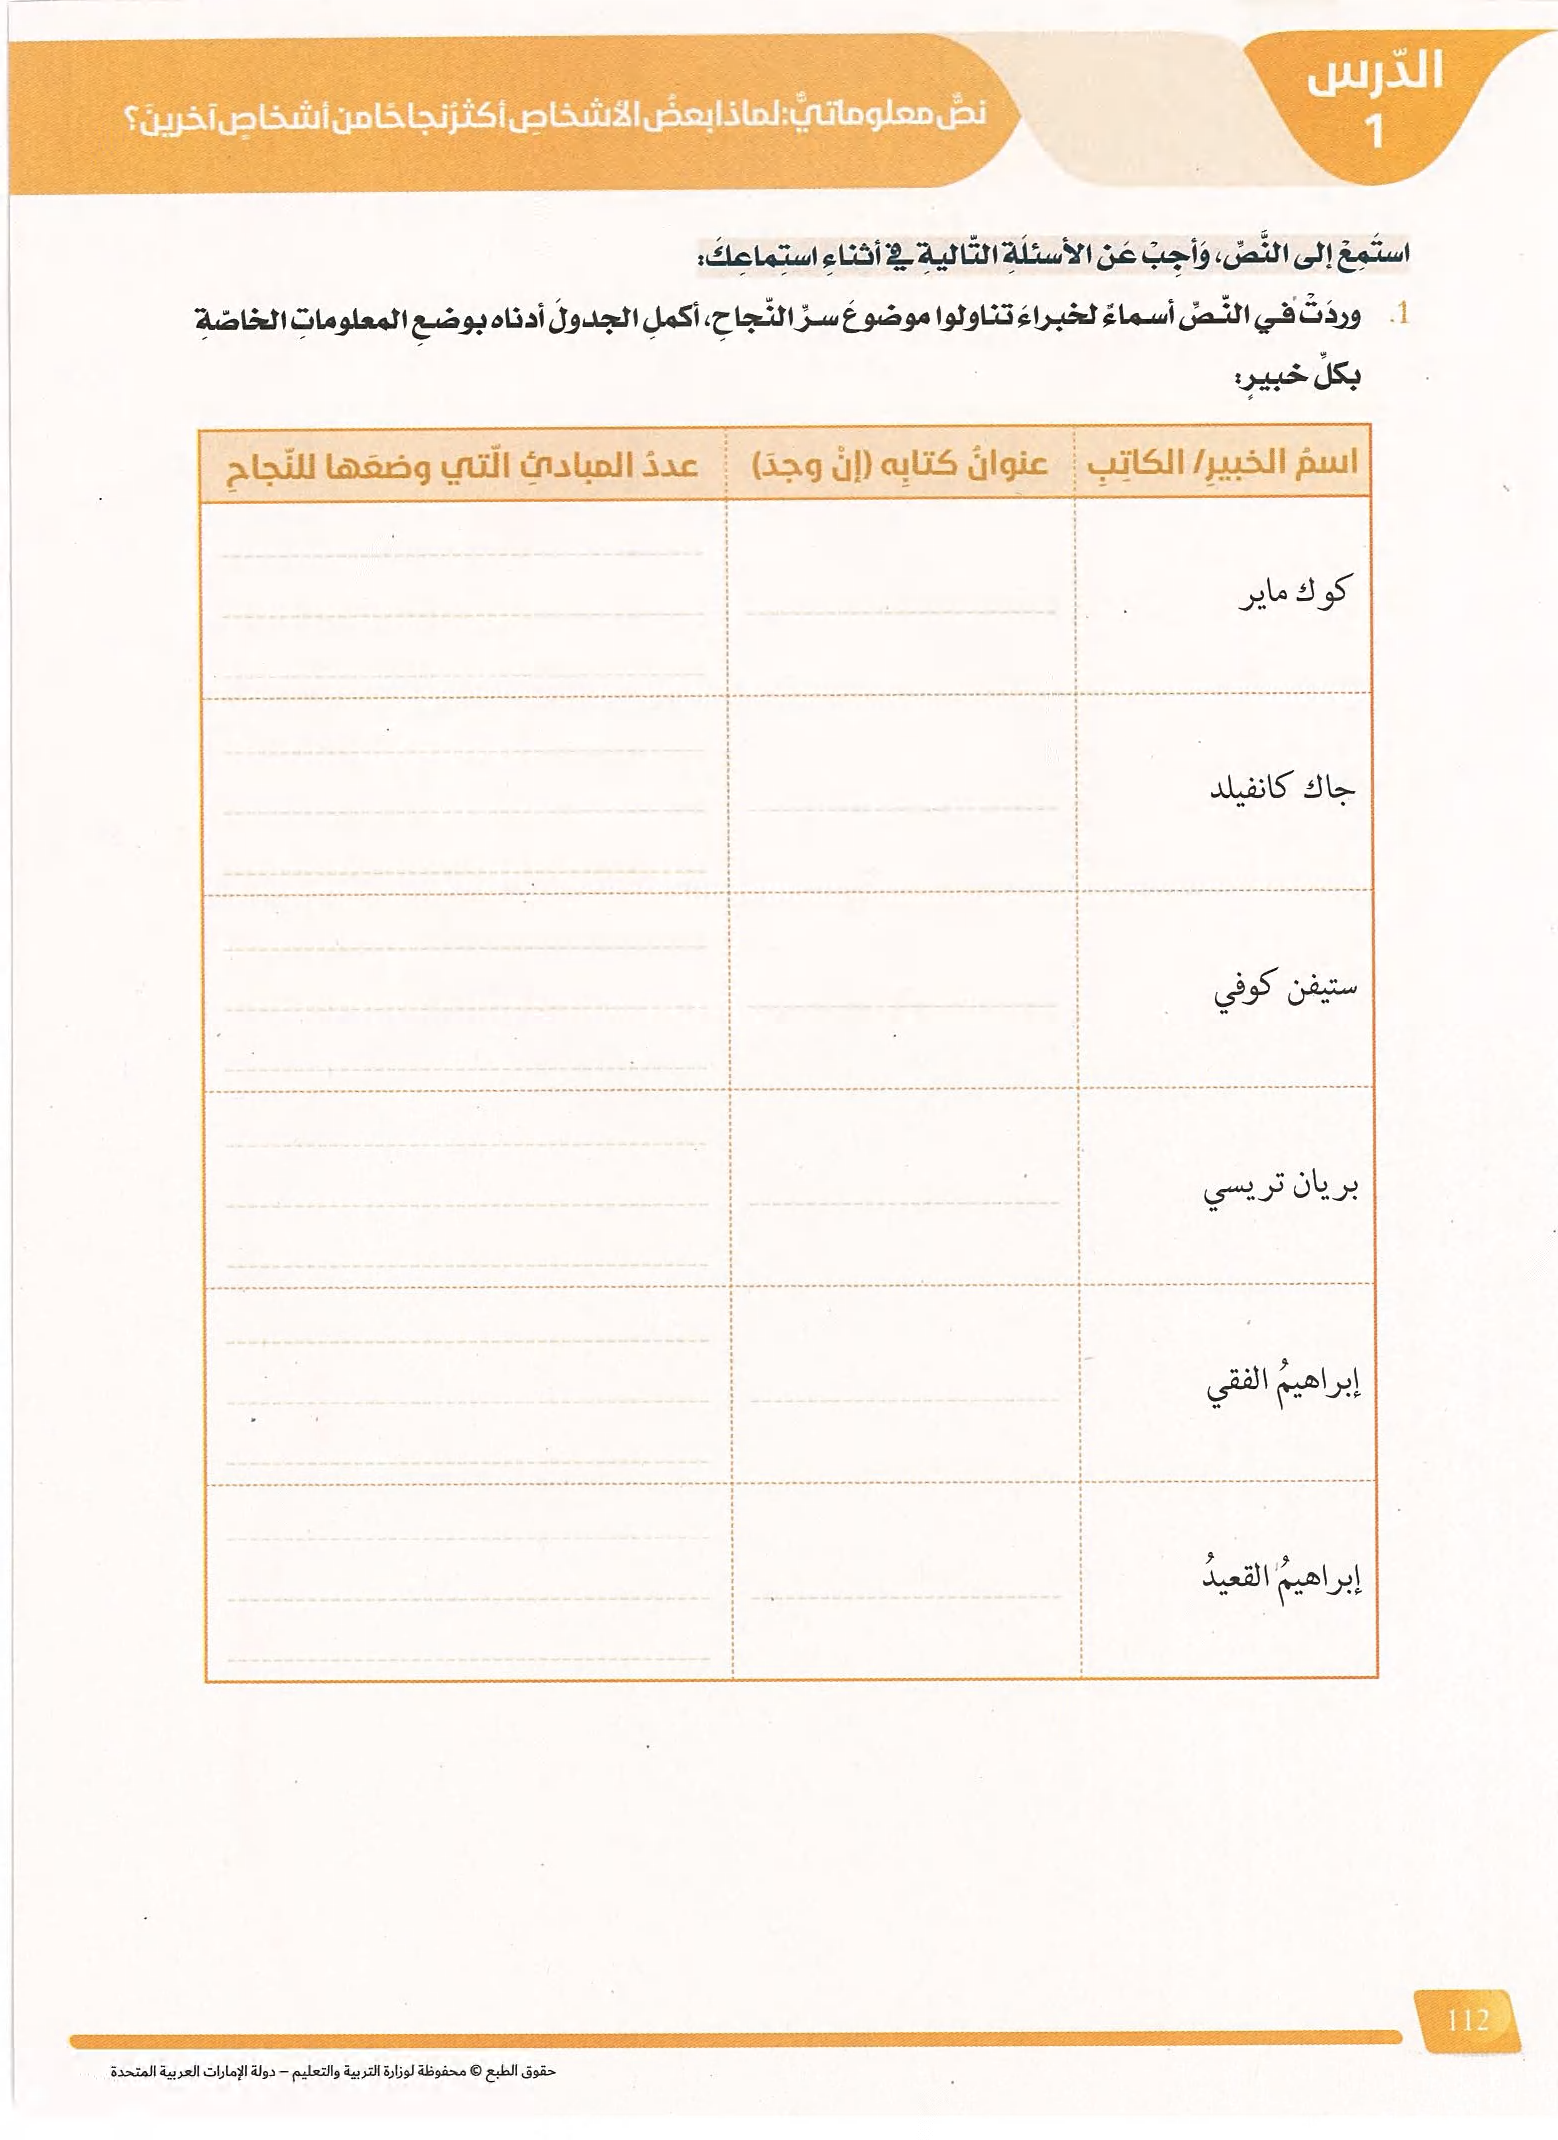 الدّرس
1
نصٌّ معلوماتيٌّ: لماذا بعضُ الأشخاصِ أكثرُ نجاحًا من أشخاصٍ آخرينَ؟
استَمِعْ إلى النَّصِّ، وَأجِبْ عَن الأسئلَةِ التّاليةِ في أثناءِ استِماعِكَ:
1. وردَتْ في النّصِّ أسماءٌ لخبراءَ تناولوا موضوعَ سرِّ النّجاحِ، أكملِ الجدولَ أدناه بوضعِ المعلوماتِ الخاصّةِ
بكلِّ خبيرٍ:
اسمُ الخبيرِ/ الكاتِبِ عنوانُ كتابِه (إنْ وجدَ) عددُ المبادئِ الّتي وضعَها للنّجاحِ
كوك ماير
جاك كانفيلد
ستيفن كوفي
بريان تريسي
إبراهيمُ الفقي
إبراهيمُ القعيدُ
112
حقوق الطبع © محفوظة لوزارة التربية والتعليم – دولة الإمارات العربية المتحدة